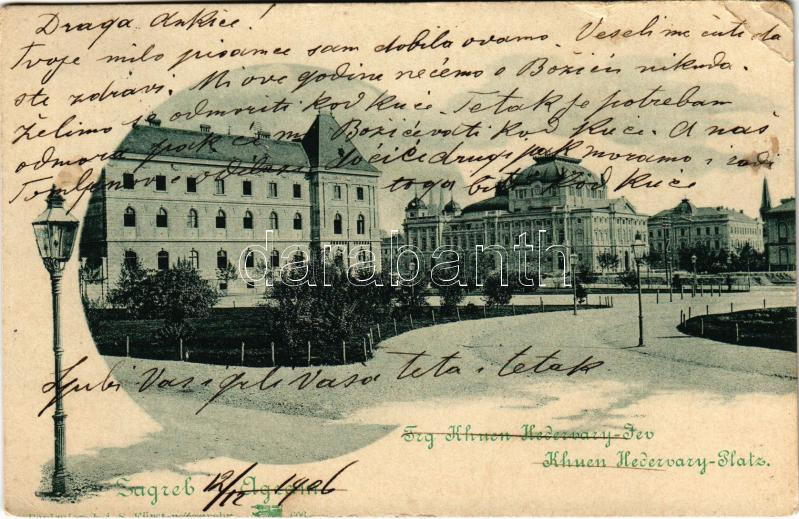 Draga Ankice!
Tvoje milo pisamce sam dobila ovamo. Veseli me čuti da
ste zdravi. Mi ove godine nećemo o Božiću nikuda.
Želimo se odmoriti kod kuće. Tetak je potreban
odmora pak će mi Božićevati kod kuće. A naš
odlazi drugi pak moramo i radi
toga biti kod kuće
Ljubi Vas i grli Vaša teta i tetak
Trg Khuen Hedervary-Jev
Khuen Hedervary-Platz.
Zagreb 12/12 1906 Agram
darabanth